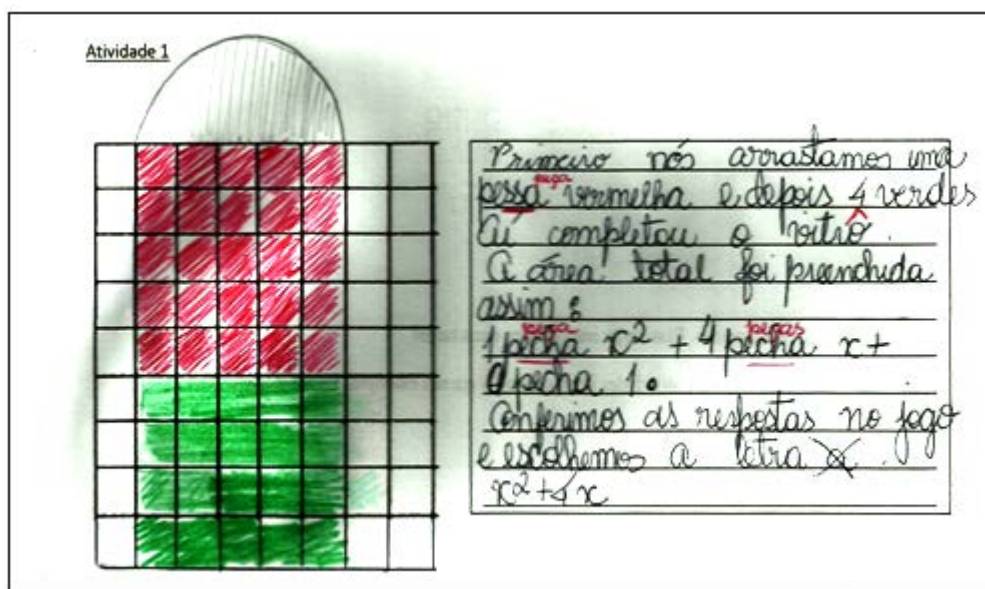 Atividade 1
Primeiro nós arrastamos uma
peça
pessa vermelha e depois 4 verdes
Ai completou o vitrô.
A área total foi preenchida
assim:
peça peças
1 pecha x² + 4 pecha x +
0 pecha 1.
Conferimos as respostas no jogo
e escolhemos a letra a.
x² + 4x